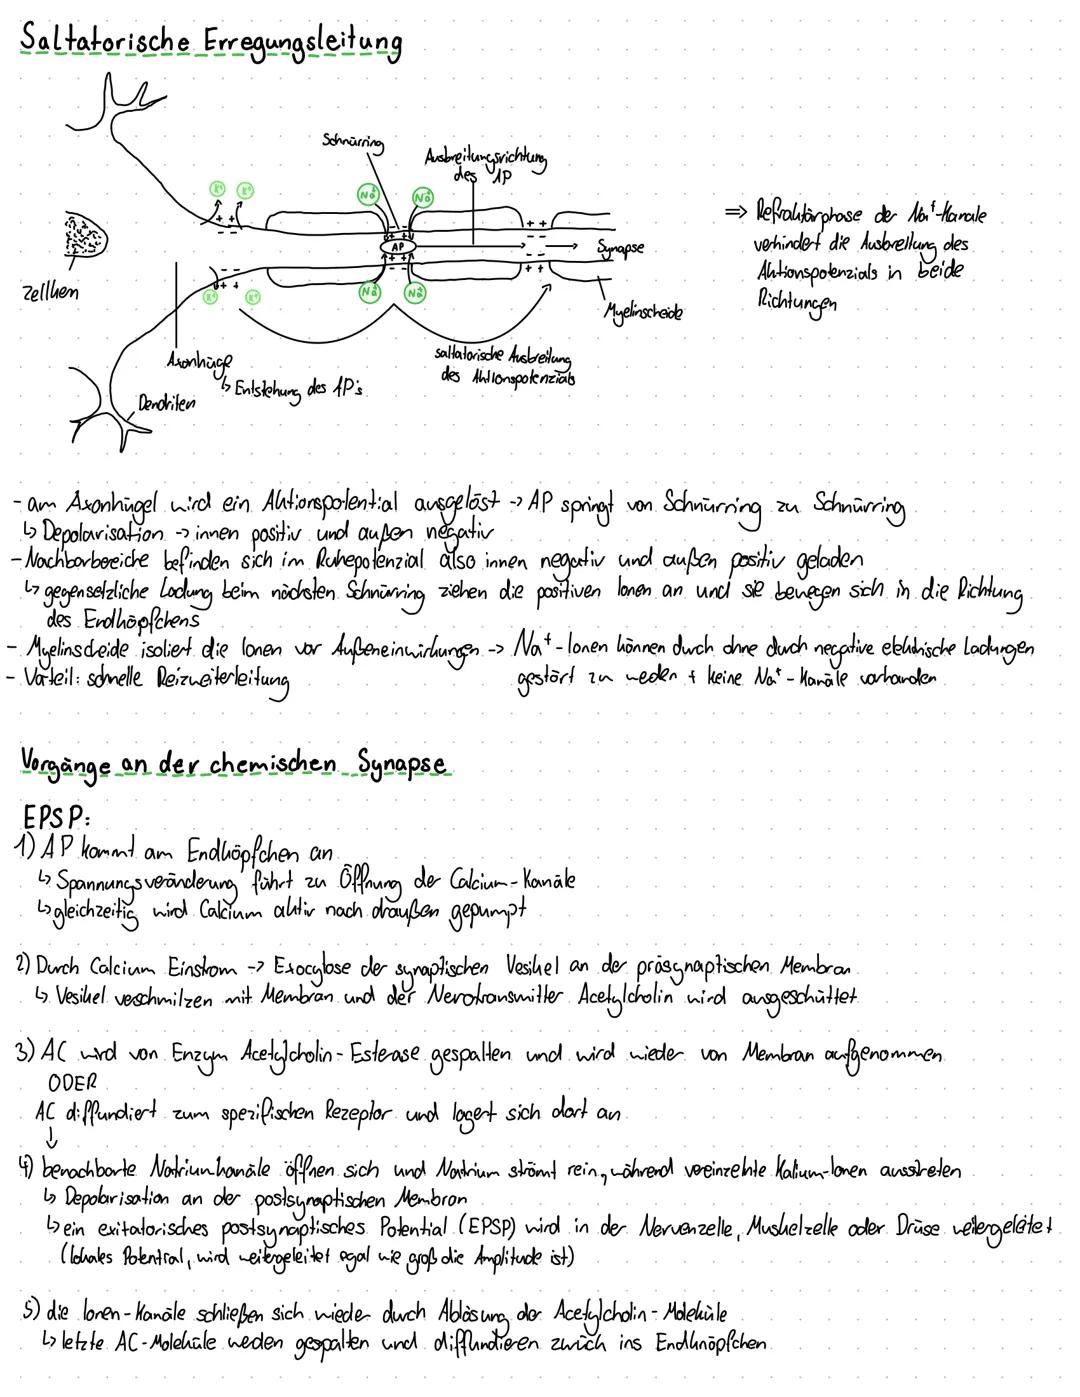 Saltatorische Erregungsleitung
Schnürring
Ausbreitungsrichtung
des AP
K⁺ K⁺
Na⁺ Na⁺
AP
Synapse
Zellkern
K⁺ K⁺
Na⁺ Na⁺
Myelinscheide
=> Refraktärphase der Na⁺-Kanäle
verhindert die Ausbreitung des
Aktionspotenzials in beide
Richtungen
Axonhügel
↳ Entstehung des AP's
saltatorische Ausbreitung
des Aktionspotenzials
Dendriten
- am Axonhügel wird ein Aktionspotential ausgelöst -> AP springt von Schnürring zu Schnürring
↳ Depolarisation -> innen positiv und außen negativ
- Nachbarbereiche befinden sich im Ruhepotenzial also innen negativ und außen positiv geladen
↳ gegensetzliche Ladung beim nächsten Schnürring ziehen die positiven Ionen an und sie bewegen sich in die Richtung
des Endköpfchens
- Myelinscheide isoliert die Ionen vor Außeneinwirkungen -> Na⁺-Ionen können durch ohne durch negative elektrische Ladungen
gestört zu werden + keine Na⁺-Kanäle vorhanden
- Vorteil: schnelle Reizweiterleitung
Vorgänge an der chemischen Synapse
EPSP:
1) AP kommt am Endköpfchen an
↳ Spannungsveränderung führt zu Öffnung der Calcium-Kanäle
↳ gleichzeitig wird Calcium aktiv nach draußen gepumpt
2) Durch Calcium Einstrom -> Exocytose der synaptischen Vesikel an der präsynaptischen Membran
↳ Vesikel verschmilzen mit Membran und der Nerotransmitter Acetylcholin wird ausgeschüttet
3) AC wird von Enzym Acetylcholin-Esterase gespalten und wird wieder von Membran aufgenommen
ODER
AC diffundiert zum spezifischen Rezeptor und lagert sich dort an
↓
4) benachbarte Natriumkanäle öffnen sich und Natrium strömt rein, während vereinzelte Kalium-Ionen ausstreten
↳ Depolarisation an der postsynaptischen Membran
↳ ein exitatorisches postsynaptisches Potential (EPSP) wird in der Nervenzelle, Muskelzelle oder Drüse weitergeleitet
(lokales Potential, wird weitergeleitet egal wie groß die Amplitude ist)
5) die Ionen-Kanäle schließen sich wieder durch Ablösung der Acetylcholin-Moleküle
↳ letzte AC-Moleküle werden gespalten und diffundieren zurück ins Endknöpfchen